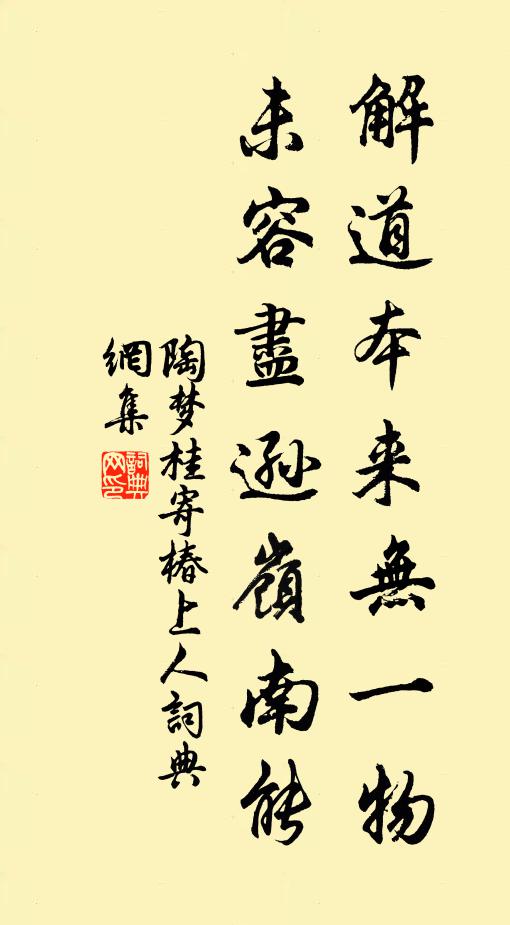 解道本来無一物
未容盡遜嶺南能
陶梦桂寄椿上人詞典
網集
詞典
网印